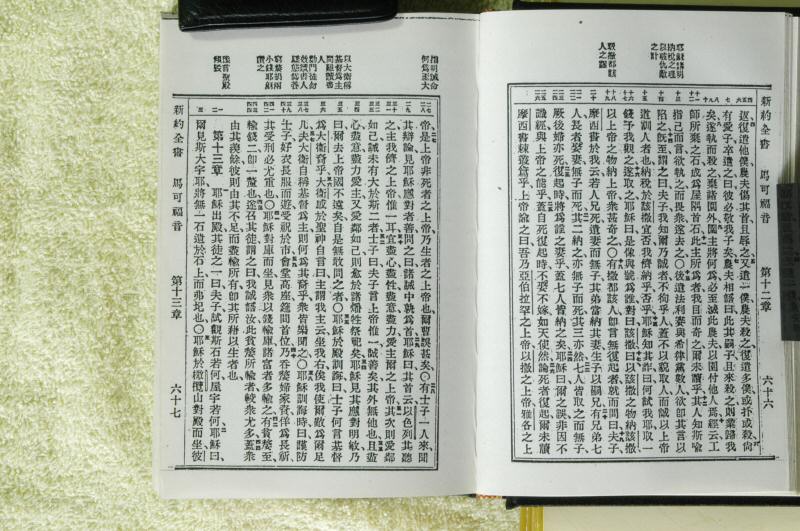 新約全書 馬可福音 第十二章 六十六
耶穌講明納稅之理以破仇敵之計
駁撒都該人之謬
遂復遣他僕農夫傷其首且辱之又遣一僕農夫殺之復遣多僕或扑或殺尚
有愛子卒遣之曰彼必敬我子矣農夫相語曰此其嗣子且來殺之則業歸我
矣遂執而殺之棄諸園外園主將何爲必至滅此農夫以園付他人焉經云工
師所棄之石成爲屋隅首石此主所爲者我目而奇之爾未讀乎其人知斯喻
指己而言欲執之而畏衆遂去之○後遣法利賽與希律黨數人欲卽其言以
陷之旣至謂之曰夫子我知爾乃誠者不徇乎人蓋不以貌取人而誠以上帝
道訓人者也納稅於該撒宜否我儕納乎否乎耶穌知其詐曰何試我耶取一
錢予我觀之遂取之耶穌曰是像與號爲誰對曰該撒曰以該撒之物納該撒
以上帝之物納上帝衆甚奇之○有撒都該人卽言無復起者就而問曰夫子
摩西書於我云若人兄死遺妻而無子其弟當納其妻生子以嗣兄有兄弟七
人長者娶妻無子而死其二納之亦無子而死其三亦然七人皆取之而無子
厥後婦亦死復起時將爲誰之妻乎蓋七人皆納之矣耶穌曰爾之誤非因不
識經與上帝之能乎蓋自死復起時不娶不嫁如天使然論死者復起爾未讀
摩西書棘叢篇乎上帝諭之曰吾乃亞伯拉罕之上帝以撒之上帝雅各之上
帝是上帝非死者之上帝乃生者之上帝也爾曹誤甚矣○有士子一人來聞
其辯論見耶穌應對者善問之曰諸誡中孰爲首耶穌曰其首云以色列其聽
之主我儕之上帝惟一耳宜盡心盡性盡意盡力愛主爾之上帝其次則愛鄰
如己誡未有大於斯二者士子曰夫子言上帝惟一誠善矣其外無他也且盡
心盡意盡力愛主又愛鄰如己則愈於諸燔牲祭祀矣耶穌見其應對明敏乃
曰爾去上帝國不遠矣自是無敢問之者○耶穌於殿訓誨曰士子何言基督
爲大衛裔乎大衛感於聖神自言曰主謂我主云坐我右俟我使爾敵爲爾足
几夫大衛自稱基督爲主則何爲其裔乎衆皆樂聞之○耶穌訓誨時曰謹防
士子好衣長服而遊受祝於市會堂高座筵間首位乃吞嫠婦家貲佯爲長祈
其受刑必尤重也○耶穌對庫而坐見衆以錢輸庫諸富者多輸之有貧嫠至
輸錢二卽一釐也遂召其徒謂之曰我誠語汝此貧嫠所輸者較衆尤多蓋衆
由其羨餘彼則由其不足而盡輸所有卽其所藉以生者也
第十三章 耶穌出殿其徒之一曰夫子試觀斯石若何屋宇若何耶穌曰
爾見斯大宇耶將無一石遺於石上而弗圮也○耶穌於橄欖山對殿而坐彼
指明誡命何爲至大
預言聖殿傾毀
新約全書 馬可福音 第十三章 六十七